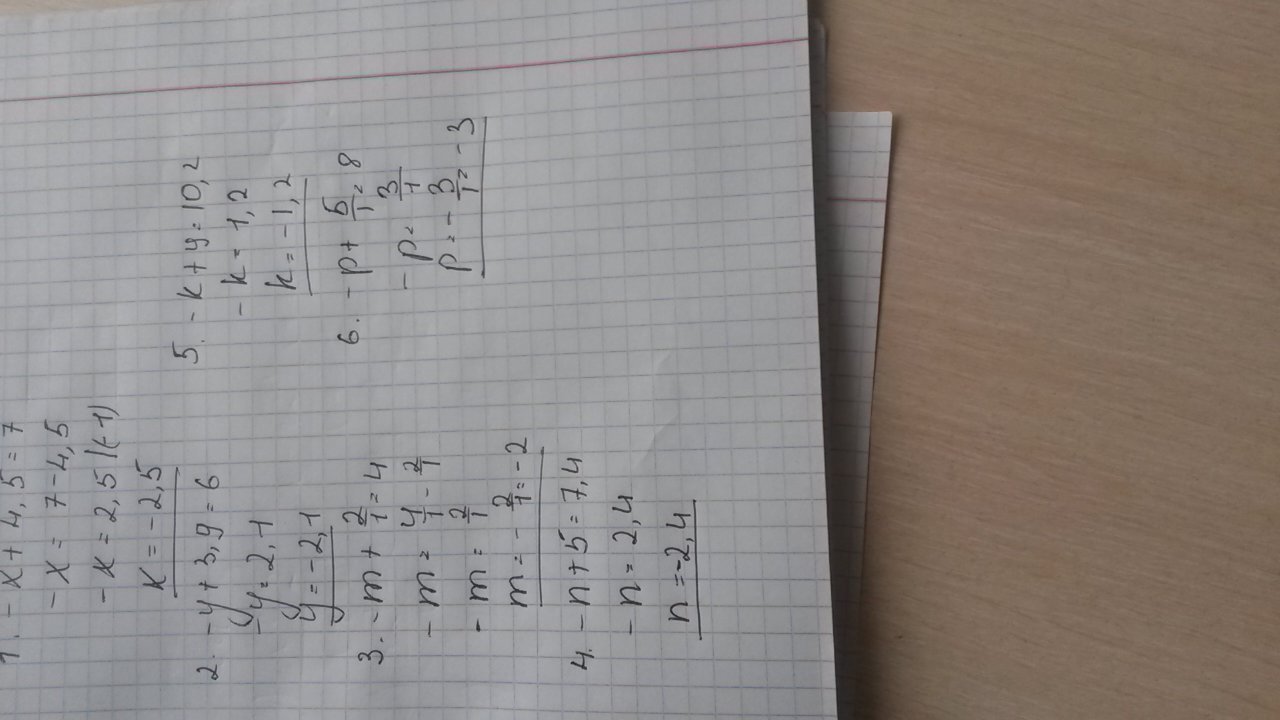 1. -x + 4,5 = 7
-x = 7-4,5
-x = 2,5 |(-1)
x = -2,5
2. -y + 3,9 = 6
-y = 2,1
y = -2,1
3. -m + 2/1 = 4
-m = 4/1 - 2/1
-m = 2/1
m = -2/1 = -2
4. -n + 5 = 7,4
-n = 2,4
n = -2,4
5. -k + 9 = 10,2
-k = 1,2
k = -1,2
6. -p + 5/1 = 8
-p = 3/1
p = -3/1 = -3